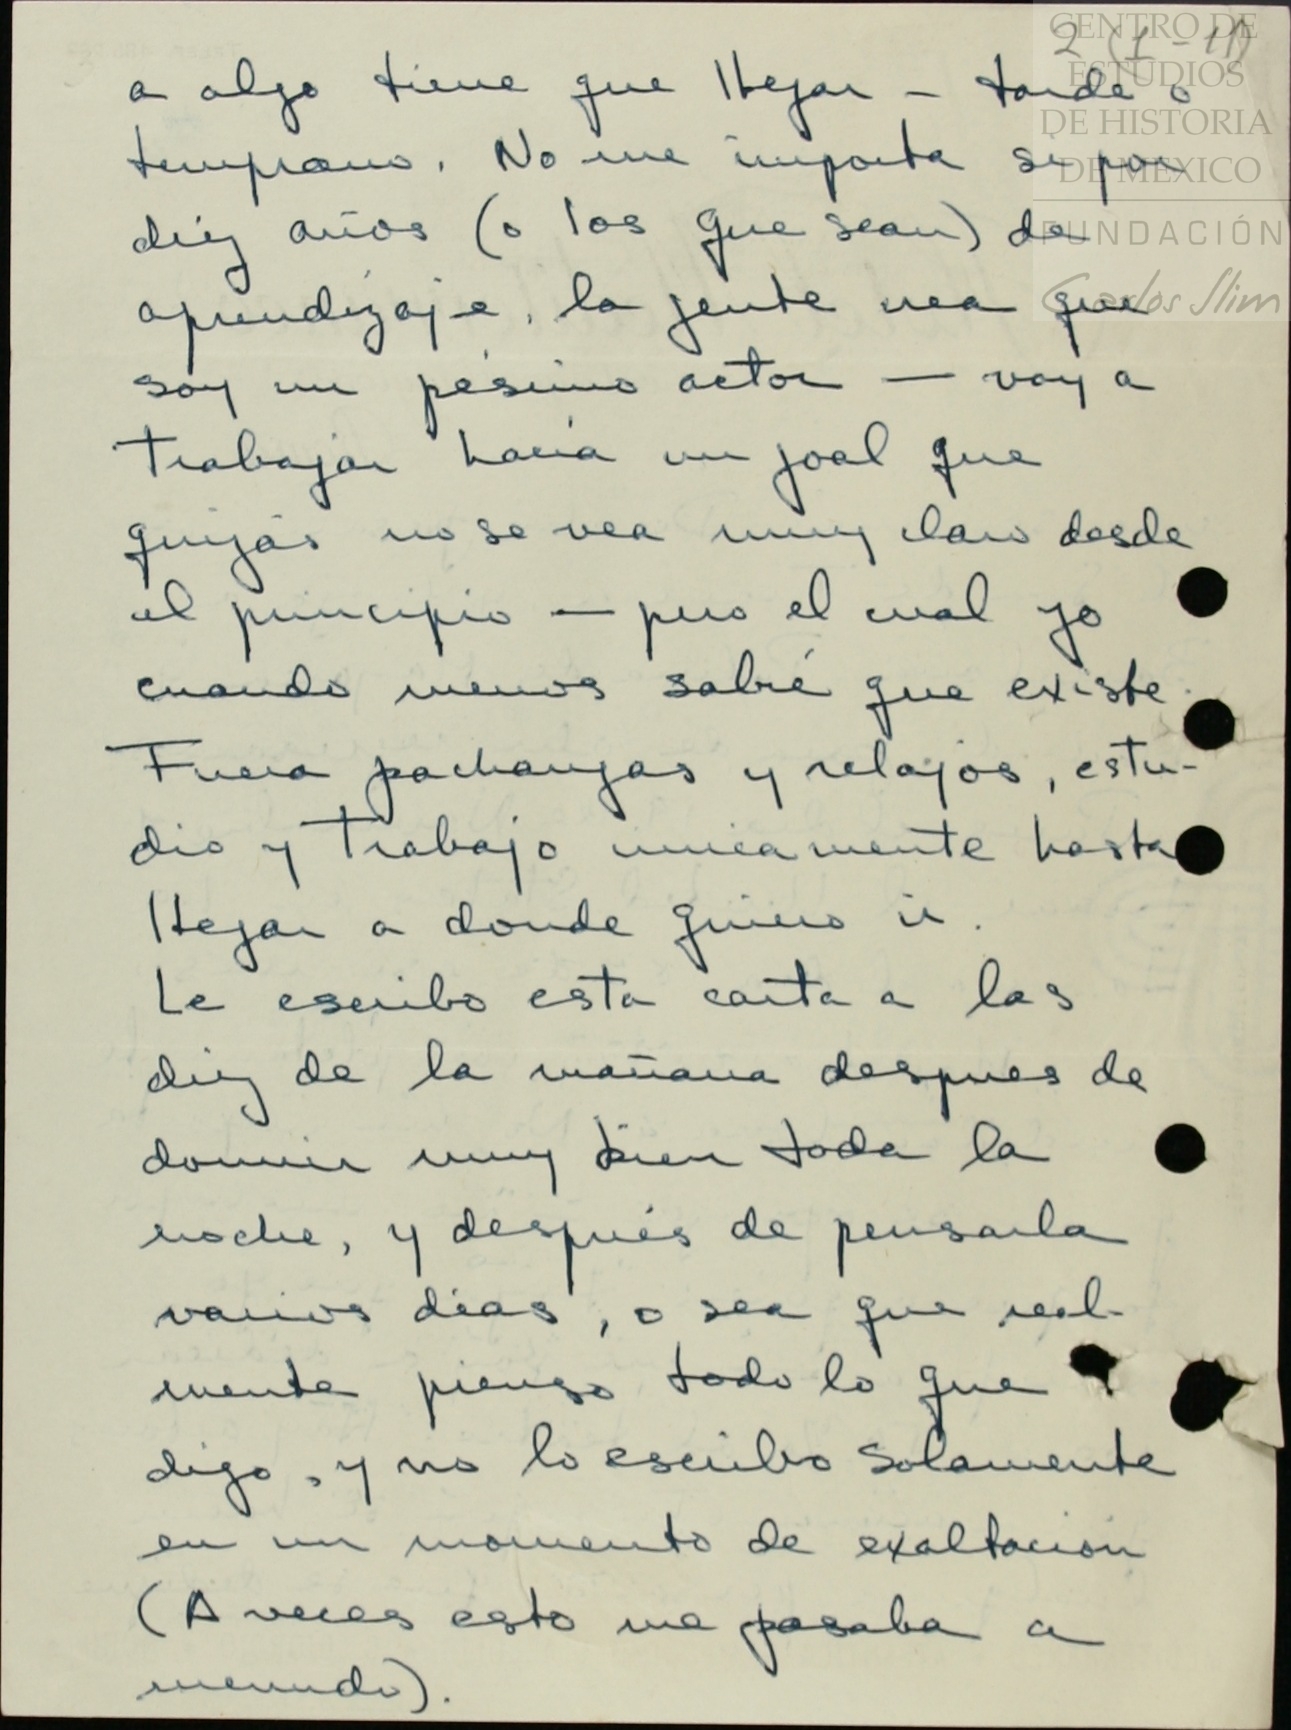 CENTRO DE
ESTUDIOS
DE HISTORIA
DE MEXICO
FUNDACIÓN
Carlos Slim
2 (1-11)
a algo tiene que llegar - tarde o
temprano. No me importa si por
diez años (o los que sean) de
aprendizaje, la gente vea que
soy un pésimo actor — voy a
trabajar hacia un goal que
quizás no se vea muy claro desde
el principio — pero el cual yo
cuando menos sabré que existe.
Fuera pachangas y relajos, estu-
dio y trabajo unicamente hasta
llegar a donde quiero ir.
Le escribo esta carta a las
diez de la mañana despues de
dormir muy bien toda la
noche, y después de pensarla
varios días, o sea que real-
mente pienso todo lo que
digo, y no lo escribo solamente
en un momento de exaltación
(A veces esto me pasaba a
menudo).